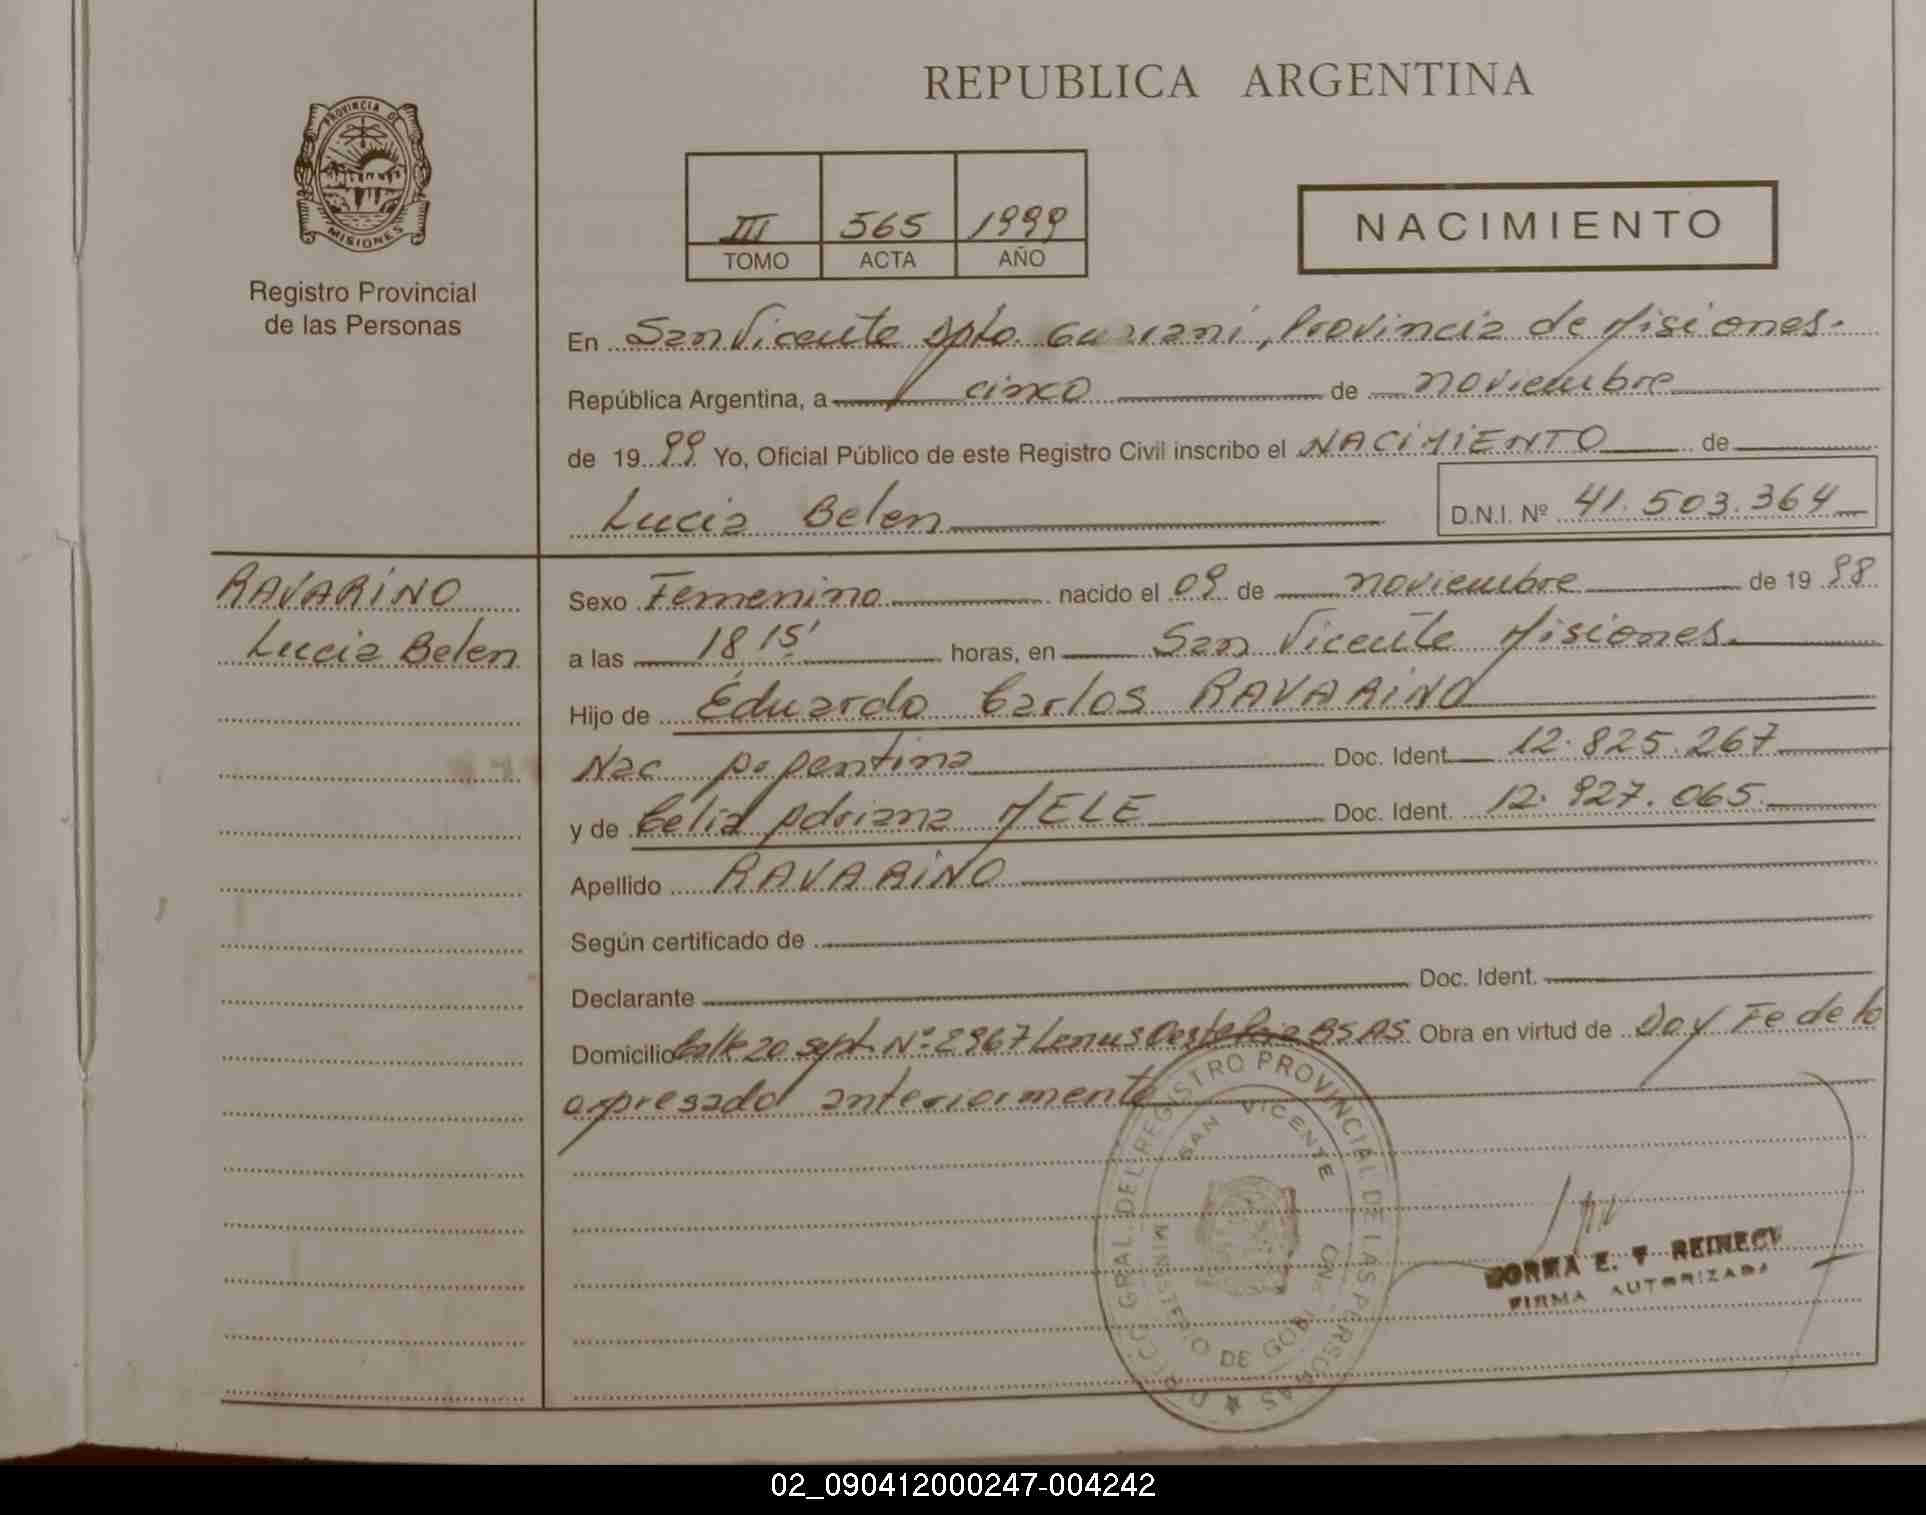 PROVINCIA DE
MISIONES
Registro Provincial
de las Personas
REPUBLICA ARGENTINA
III 565 1999
TOMO ACTA AÑO
NACIMIENTO
En San Vicente Dpto. Guarani, Provincia de Misiones.
República Argentina, a cinco de noviembre
de 1999 Yo, Oficial Público de este Registro Civil inscribo el NACIMIENTO de
Lucia Belen D.N.I. Nº 41.503.364
RAVARINO
Lucia Belen
Sexo Femenino nacido el 09 de noviembre de 1998
a las 18 15' horas, en San Vicente Misiones.
Hijo de Eduardo Carlos RAVARINO
Nac Argentina Doc. Ident. 12.825.267
y de Celia Adriana MELE Doc. Ident. 12.927.065
Apellido RAVARINO
Según certificado de
Declarante Doc. Ident.
Domicilio Calle 20 sept. Nº 2967 Lanus Oeste BS AS Obra en virtud de Doy Fe de lo
expresado anteriormente
DIRECC. GRAL. DEL REGISTRO PROVINCIAL DE LAS PERSONAS
SAN VICENTE
MINISTERIO DE GOB
NORMA E. REINECK
FIRMA AUTORIZADA
02_090412000247-004242